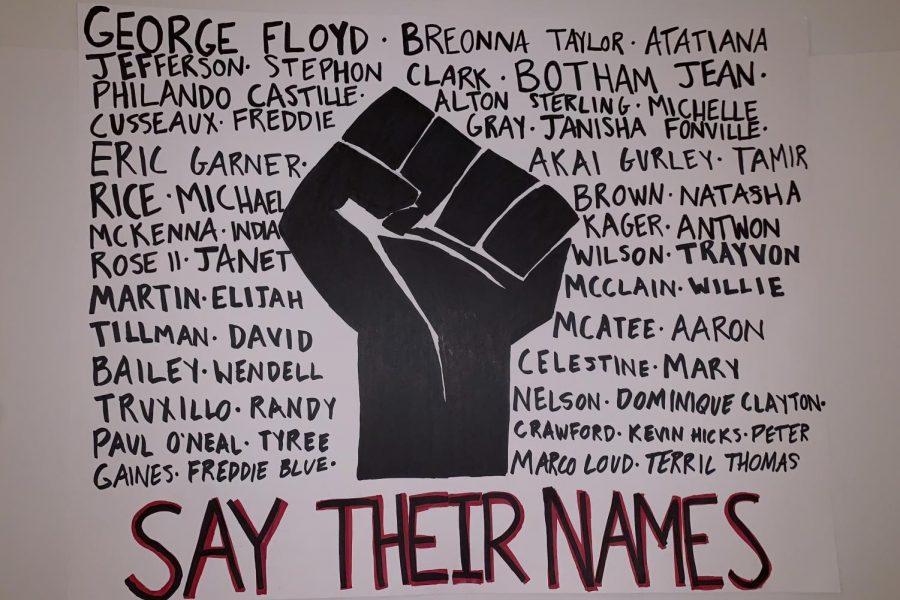 GEORGE FLOYD · BREONNA TAYLOR · ATATIANA
JEFFERSON · STEPHON CLARK · BOTHAM JEAN ·
PHILANDO CASTILLE · ALTON STERLING · MICHELLE
CUSSEAUX · FREDDIE GRAY · JANISHA FONVILLE ·
ERIC GARNER · AKAI GURLEY · TAMIR
RICE · MICHAEL BROWN · NATASHA
MCKENNA · INDIA KAGER · ANTWON
ROSE II · JANET WILSON · TRAYVON
MARTIN · ELIJAH MCCLAIN · WILLIE
TILLMAN · DAVID MCATEE · AARON
BAILEY · WENDELL CELESTINE · MARY
TRUXILLO · RANDY NELSON · DOMINIQUE CLAYTON ·
PAUL O'NEAL · TYREE CRAWFORD · KEVIN HICKS · PETER
GAINES · FREDDIE BLUE · MARCO LOUD · TERRIL THOMAS
SAY THEIR NAMES